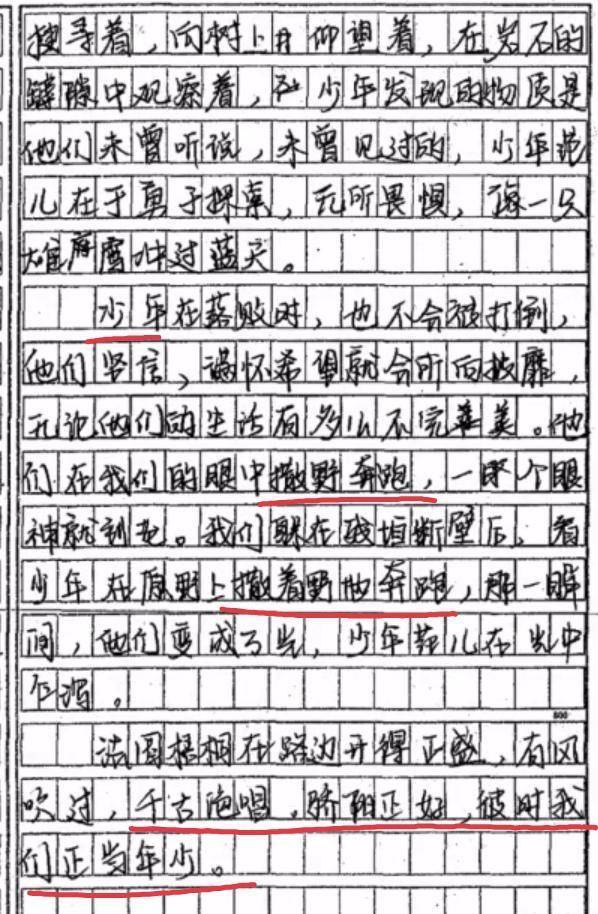 搜寻着，向树上中仰望着，在岩石的
罅隙中观察着，少年发现的物质是
他们未曾听说，未曾见过的，少年范
儿在于勇于探索，无所畏惧，像一只
雄鹰冲过蓝天。
少年在落败时，也不会被打倒，
他们坚信，满怀希望就会所向披靡，
无论他们的生活有多么不完美。他
们在我们的眼中撒野奔跑，一个眼
神就到老。我们躲在残垣断壁后，看
少年在原野上撒着野地奔跑，那一瞬
间，他们变成了光，少年范儿在光中
乍泻。
800
法国梧桐在路边开得正盛，有风
吹过，千古绝唱，骄阳正好，彼时我
们正当年少。